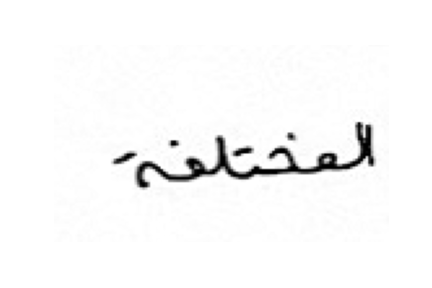 المختلفة